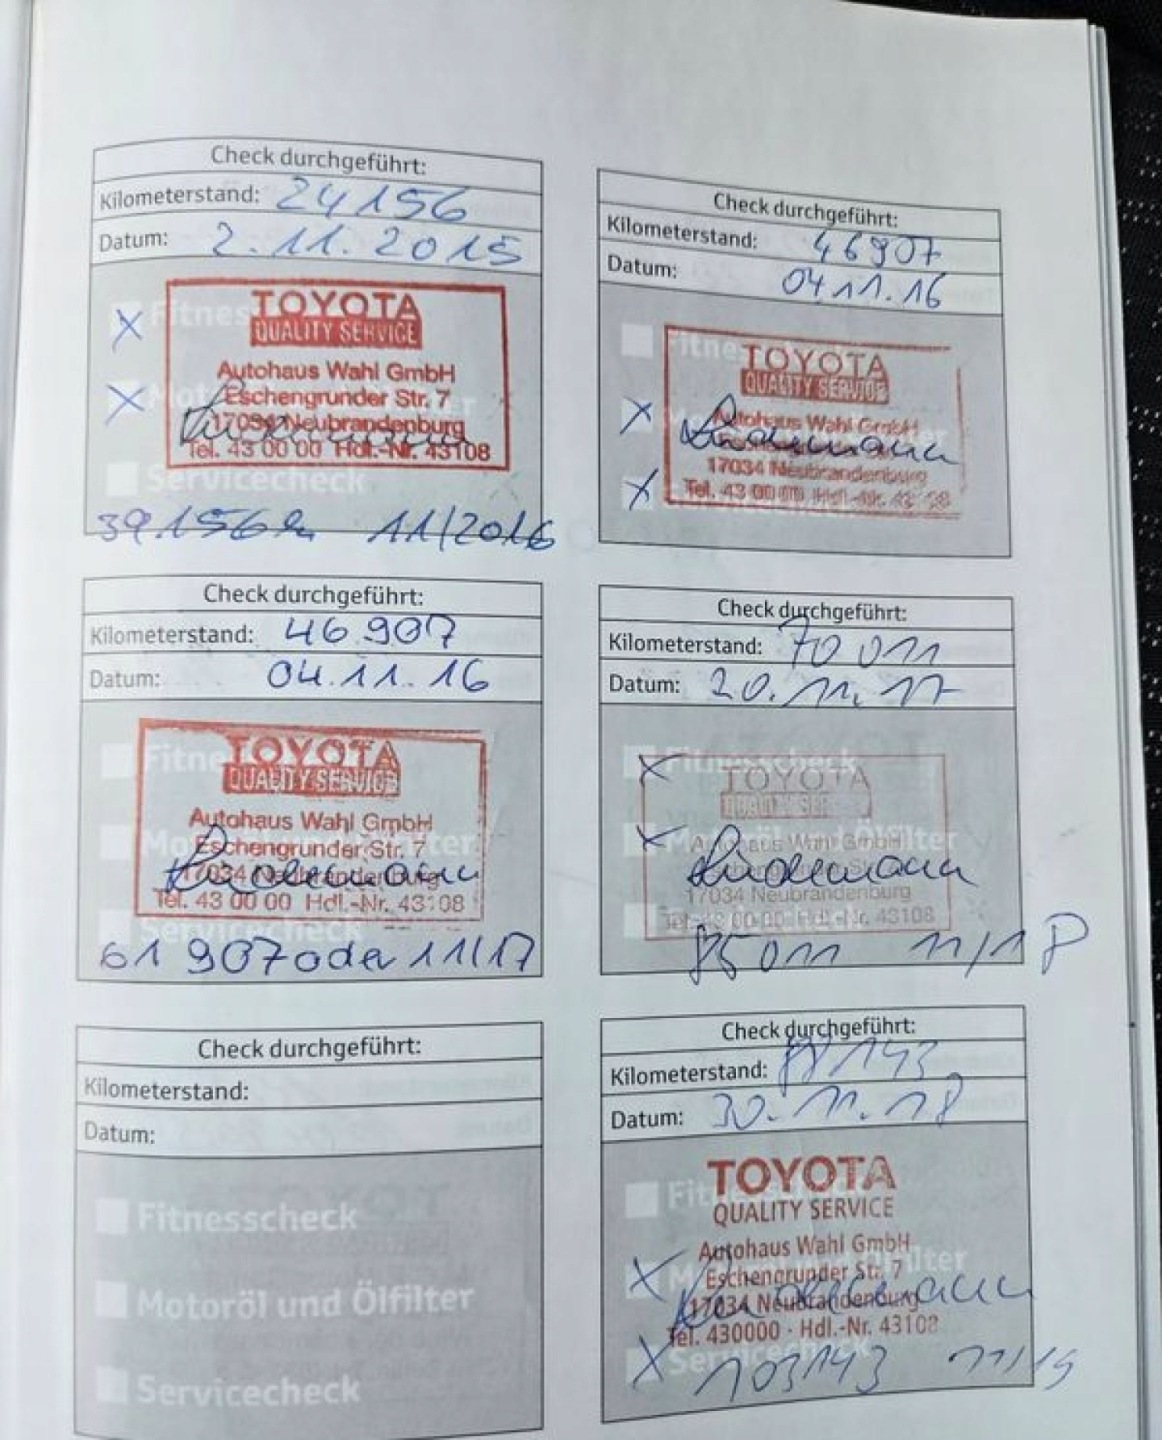 Check durchgeführt:
Kilometerstand: 24156
Datum: 2.11.2015
Fitnes
TOYOTA
QUALITY SERVICE
Autohaus Wahl GmbH
Eschengrunder Str. 7
17034 Neubrandenburg
Tel. 43 00 00 Hdl.-Nr. 43108
Servicecheck
39156 11/2016
Check durchgeführt:
Kilometerstand: 46907
Datum: 04.11.16
Fitne
TOYOTA
QUALITY SERVICE
Autohaus Wahl GmbH
17034 Neubrandenburg
Tel. 43 00 00 Hdl.-Nr. 43108
Lindemann
Check durchgeführt:
Kilometerstand: 46907
Datum: 04.11.16
Fitne
TOYOTA
QUALITY SERVICE
Autohaus Wahl GmbH
Eschengrunder Str. 7
17034 Neubrandenburg
Lindemann
Tel. 43 00 00 Hdl.-Nr. 43108
Servicecheck
61907 oder 11/17
Check durchgeführt:
Kilometerstand: 70011
Datum: 20.11.17
Fitnesscheck
TOYOTA
QUALITY SERVICE
Motoröl und Ölfilter
Autohaus Wahl GmbH
Lindemann
17034 Neubrandenburg
Tel. 43 00 00 Hdl.-Nr. 43108
85011 11/18
Check durchgeführt:
Kilometerstand:
Datum:
Fitnesscheck
Motoröl und Ölfilter
Servicecheck
Check durchgeführt:
Kilometerstand: 88143
Datum: 30.11.18
Fit
TOYOTA
QUALITY SERVICE
Autohaus Wahl GmbH
Eschengrunder Str. 7
17034 Neubrandenburg
Tel. 430000 · Hdl.-Nr. 43108
Servicecheck
103143 11/19